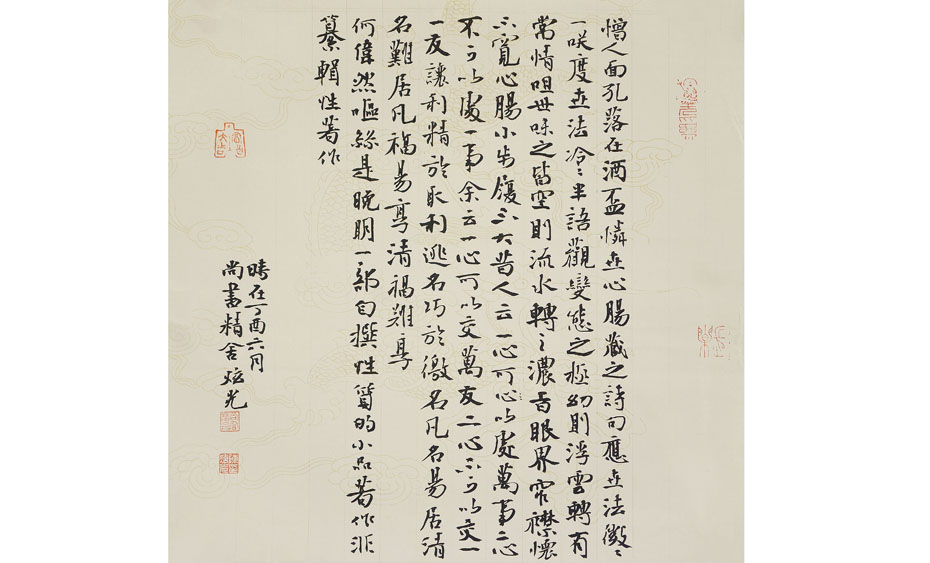 憎人面孔落在酒盃憐世心腸藏之詩句應世法微々
一咲度世法冷々半語觀變態之極幻則浮雲轉有
常情咀世味之皆空則流水轉々濃旨眼界窄襟懷
不寬心腸小步履不大昔人云一心可以處萬事二心
不可以處一事余云一心可以交萬友二心不可以交一
一友讓利精於取利逃名巧於徼名凡名易居清
名難居凡福易享清福難享
何偉然嘔絲是晚明一部自撰性質的小品著作非
纂輯性著作
時在丁酉六月
尚書精舍炫光